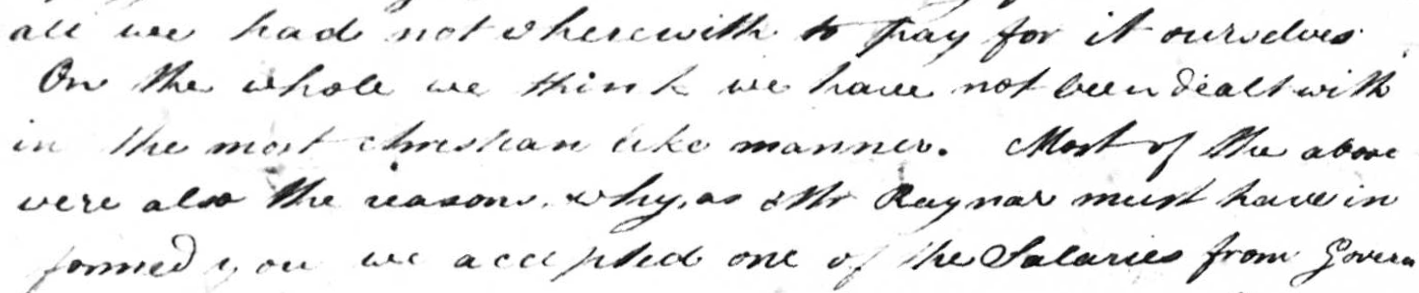 all we had not wherewith to pay for it ourselves
On the whole we think we have not been dealt with
in the most christian like manner. Most of the above
were also the reasons, why, as Mr Raynar must have in
formed you we accepted one of the Salaries from Govern